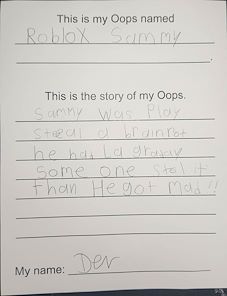 This is my Oops named
Roblox Sammy
This is the story of my Oops.
Sammy was Play
Steeal a brainrot
he had La graday
Some one Stol it
than He got mad !!
My name: Dev